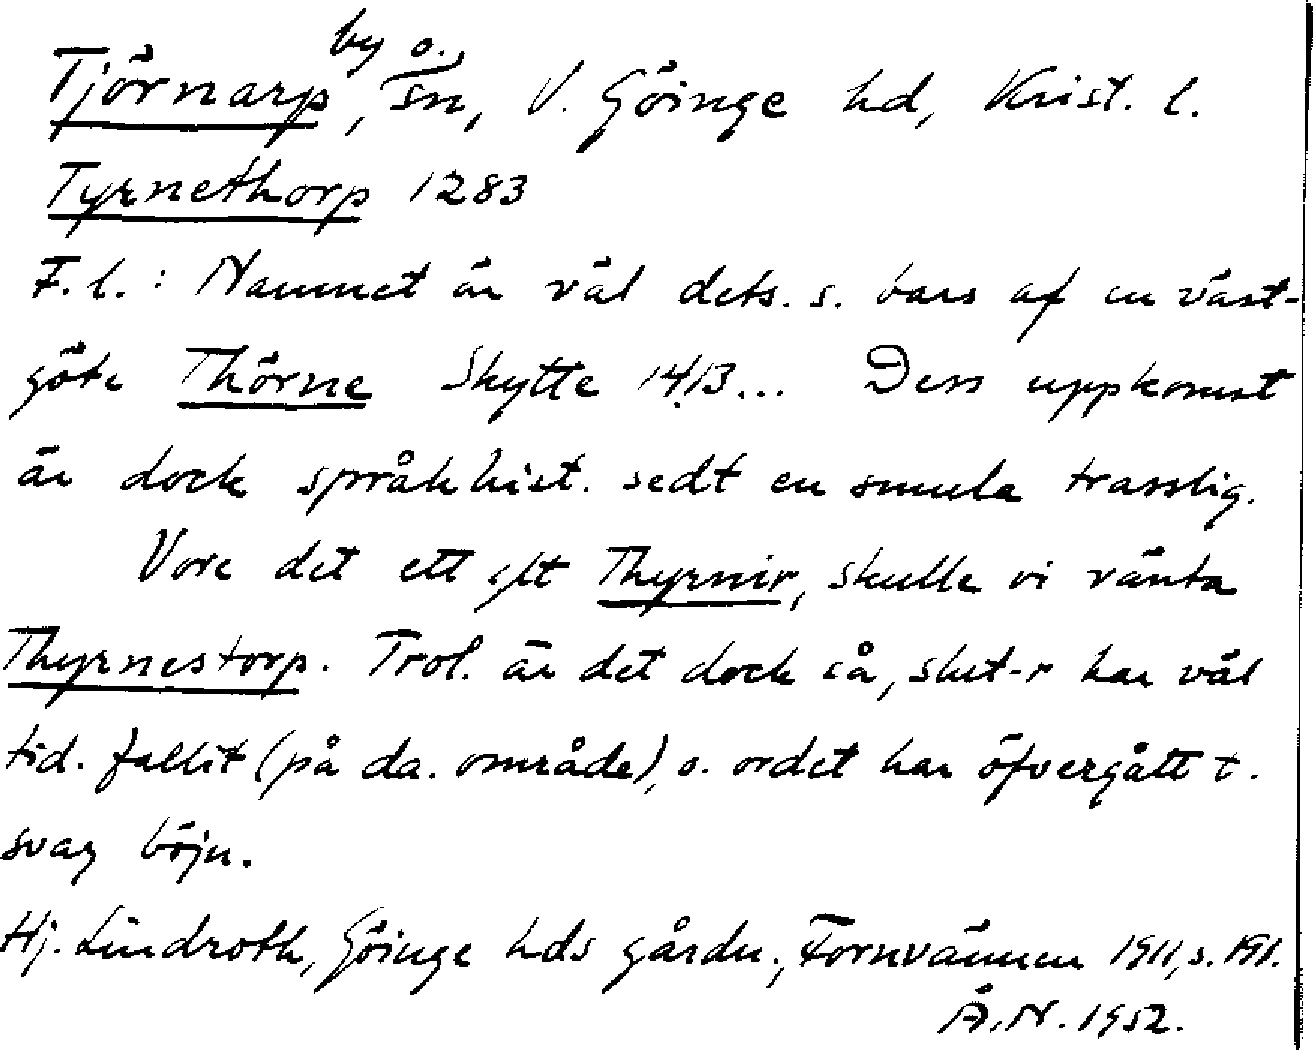 Tjörnarp, by o. sn, V. Göinge hd, Krist. l.
Tyrnethorp 1283
F. l. : Namnet är väl dets. s. bars af en väst-
göte Thörne Skytte 1413... Dess uppkomst
är dock språkhist. sedt en smula trasslig.
Vore det ett gt Thyrnir, skulle vi vänta
Thyrnestorp. Trol. är det dock så, slut-r har väl
tid. fallit (på da. område), o. ordet har öfvergått t.
svag böjn.
Hj. Lindroth, Göinge hds gårdn., Fornvännen 1911, s. 191.
Å.N. 1952.